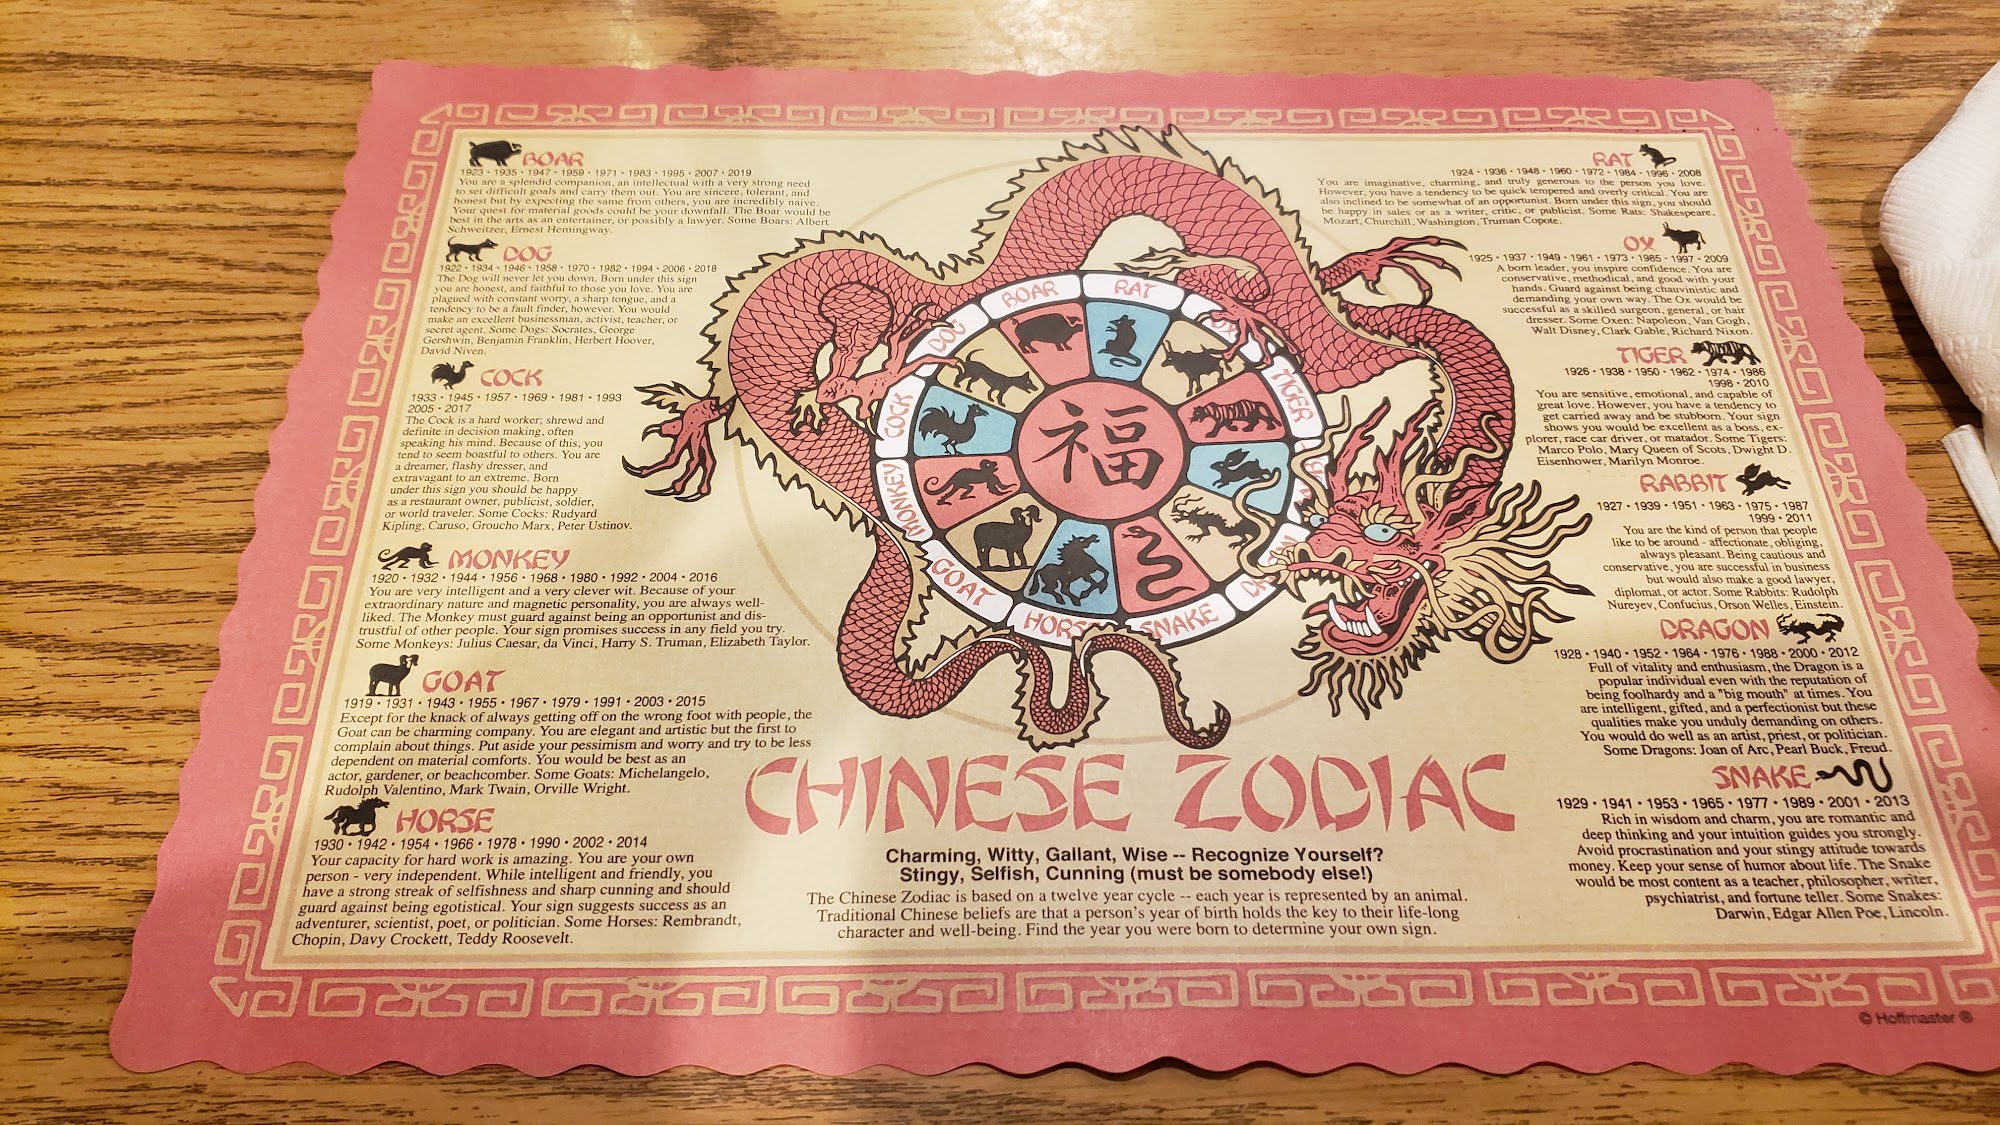 BOAR
1923 • 1935 • 1947 • 1959 • 1971 • 1983 • 1995 • 2007 • 2019
You are a splendid companion, an intellectual with a very strong need
to set difficult goals and carry them out. You are sincere, tolerant, and
honest but by expecting the same from others, you are incredibly naive.
Your quest for material goods could be your downfall. The Boar would be
best in the arts as an entertainer, or possibly a lawyer. Some Boars: Albert
Schweitzer, Ernest Hemingway.
DOG
1922 • 1934 • 1946 • 1958 • 1970 • 1982 • 1994 • 2006 • 2018
The Dog will never let you down. Born under this sign
you are honest, and faithful to those you love. You are
plagued with constant worry, a sharp tongue, and a
tendency to be a fault finder, however. You would
make an excellent businessman, activist, teacher, or
secret agent. Some Dogs: Socrates, George
Gershwin, Benjamin Franklin, Herbert Hoover,
David Niven.
COCK
1933 • 1945 • 1957 • 1969 • 1981 • 1993
2005 • 2017
The Cock is a hard worker; shrewd and
definite in decision making, often
speaking his mind. Because of this, you
tend to seem boastful to others. You are
a dreamer, flashy dresser, and
extravagant to an extreme. Born
under this sign you should be happy
as a restaurant owner, publicist, soldier,
or world traveler. Some Cocks: Rudyard
Kipling, Caruso, Groucho Marx, Peter Ustinov.
MONKEY
1920 • 1932 • 1944 • 1956 • 1968 • 1980 • 1992 • 2004 • 2016
You are very intelligent and a very clever wit. Because of your
extraordinary nature and magnetic personality, you are always well-
liked. The Monkey must guard against being an opportunist and dis-
trustful of other people. Your sign promises success in any field you try.
Some Monkeys: Julius Caesar, da Vinci, Harry S. Truman, Elizabeth Taylor.
GOAT
1919 • 1931 • 1943 • 1955 • 1967 • 1979 • 1991 • 2003 • 2015
Except for the knack of always getting off on the wrong foot with people, the
Goat can be charming company. You are elegant and artistic but the first to
complain about things. Put aside your pessimism and worry and try to be less
dependent on material comforts. You would be best as an
actor, gardener, or beachcomber. Some Goats: Michelangelo,
Rudolph Valentino, Mark Twain, Orville Wright.
HORSE
1930 • 1942 • 1954 • 1966 • 1978 • 1990 • 2002 • 2014
Your capacity for hard work is amazing. You are your own
person - very independent. While intelligent and friendly, you
have a strong streak of selfishness and sharp cunning and should
guard against being egotistical. Your sign suggests success as an
adventurer, scientist, poet, or politician. Some Horses: Rembrandt,
Chopin, Davy Crockett, Teddy Roosevelt.
BOAR
RAT
TIGER
SNAKE
HORSE
GOAT
MONKEY
COCK
DOG
福
CHINESE ZODIAC
Charming, Witty, Gallant, Wise -- Recognize Yourself?
Stingy, Selfish, Cunning (must be somebody else!)
The Chinese Zodiac is based on a twelve year cycle -- each year is represented by an animal.
Traditional Chinese beliefs are that a person's year of birth holds the key to their life-long
character and well-being. Find the year you were born to determine your own sign.
RAT
1924 • 1936 • 1948 • 1960 • 1972 • 1984 • 1996 • 2008
You are imaginative, charming, and truly generous to the person you love.
However, you have a tendency to be quick tempered and overly critical. You are
also inclined to be somewhat of an opportunist. Born under this sign, you should
be happy in sales or as a writer, critic, or publicist. Some Rats: Shakespeare,
Mozart, Churchill, Washington, Truman Copote.
OX
1925 • 1937 • 1949 • 1961 • 1973 • 1985 • 1997 • 2009
A born leader, you inspire confidence. You are
conservative, methodical, and good with your
hands. Guard against being chauvinistic and
demanding your own way. The Ox would be
successful as a skilled surgeon, general, or hair
dresser. Some Oxen: Napoleon, Van Gogh,
Walt Disney, Clark Gable, Richard Nixon.
TIGER
1926 • 1938 • 1950 • 1962 • 1974 • 1986
1998 • 2010
You are sensitive, emotional, and capable of
great love. However, you have a tendency to
get carried away and be stubborn. Your sign
shows you would be excellent as a boss, ex-
plorer, race car driver, or matador. Some Tigers:
Marco Polo, Mary Queen of Scots, Dwight D.
Eisenhower, Marilyn Monroe.
RABBIT
1927 • 1939 • 1951 • 1963 • 1975 • 1987
1999 • 2011
You are the kind of person that people
like to be around - affectionate, obliging,
always pleasant. Being cautious and
conservative, you are successful in business
but would also make a good lawyer,
diplomat, or actor. Some Rabbits: Rudolph
Nureyev, Confucius, Orson Welles, Einstein.
DRAGON
1928 • 1940 • 1952 • 1964 • 1976 • 1988 • 2000 • 2012
Full of vitality and enthusiasm, the Dragon is a
popular individual even with the reputation of
being foolhardy and a "big mouth" at times. You
are intelligent, gifted, and a perfectionist but these
qualities make you unduly demanding on others.
You would do well as an artist, priest, or politician.
Some Dragons: Joan of Arc, Pearl Buck, Freud.
SNAKE
1929 • 1941 • 1953 • 1965 • 1977 • 1989 • 2001 • 2013
Rich in wisdom and charm, you are romantic and
deep thinking and your intuition guides you strongly.
Avoid procrastination and your stingy attitude towards
money. Keep your sense of humor about life. The Snake
would be most content as a teacher, philosopher, writer,
psychiatrist, and fortune teller. Some Snakes:
Darwin, Edgar Allen Poe, Lincoln.
© Hoffmaster ®